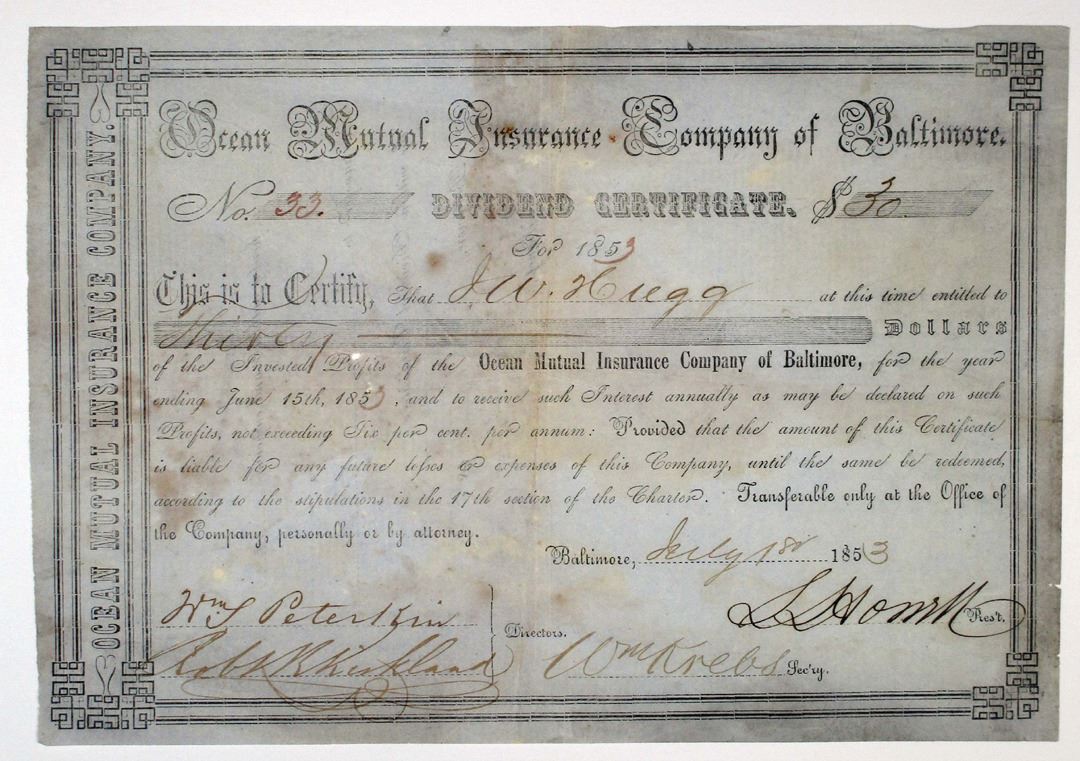 OCEAN MUTUAL INSURANCE COMPANY.
Ocean Mutual Insurance Company of Baltimore.
No. 33. DIVIDEND CERTIFICATE. $ 30
For 1853
This is to Certify, That J W. Hugg at this time entitled to
Thirty Dollars
of the Invested Profits of the Ocean Mutual Insurance Company of Baltimore, for the year
ending June 15th, 1853, and to receive such Interest annually as may be declared on such
Profits, not exceeding Six per cent. per annum: Provided that the amount of this Certificate
is liable for any future losses or expenses of this Company, until the same be redeemed,
according to the stipulations in the 17th section of the Charter. Transferable only at the Office of
the Company, personally or by attorney.
Baltimore, July 1st 1853
Wm S Peterkin
Robt R Kirkland Directors.
Pres't.
Wm Krebs Sec'ry.